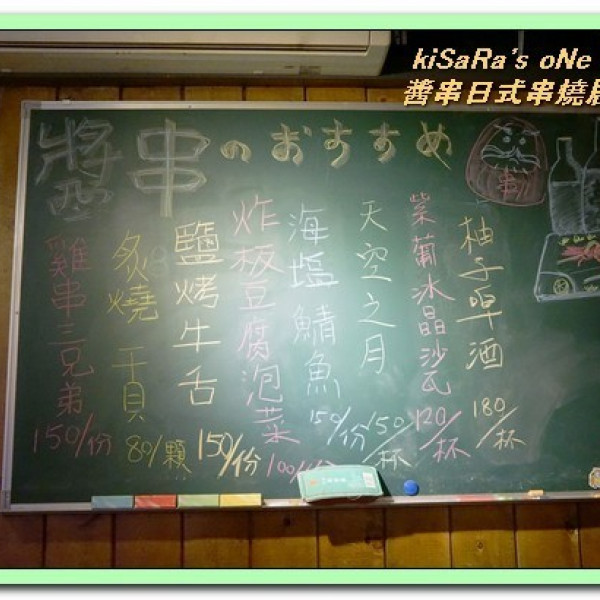 kiSaRa's oNe
醬串日式串燒
醬串のおすすめ
雞串三兄弟 150/份
炙燒干貝 80/顆
鹽烤牛舌 150/份
炸板豆腐泡菜 100/
海塩鯖魚 150/份
天空之月 150/杯
紫葡冰晶沙瓦 120/杯
柚子啤酒 180/杯